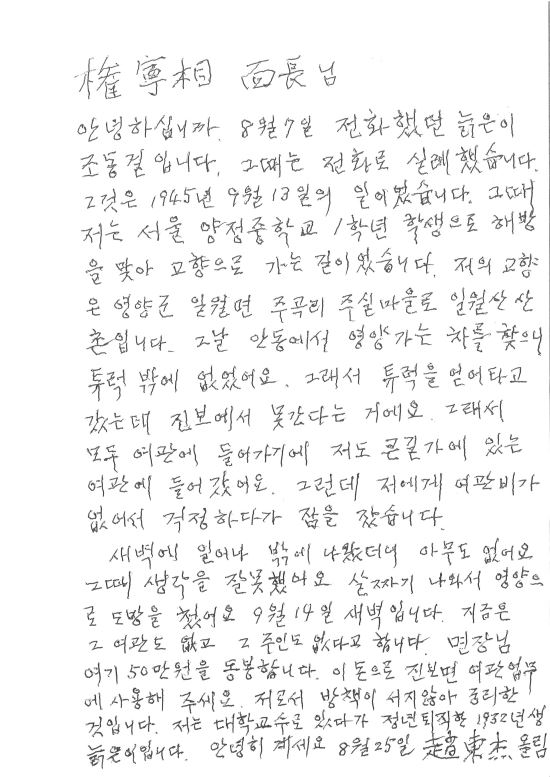 權寧相 面長님
안녕하십니까. 8월7일 전화했던 늙은이
조동걸입니다. 그때는 전화로 실례했습니다.
그것은 1945년 9월13일의 일이었습니다. 그때
저는 서울 양정중학교 1학년 학생으로 해방
을 맞아 고향으로 가는 길이었습니다. 저의 고향
은 영양군 일월면 주곡리 주실마을로 일월산 산
촌입니다. 그날 안동에서 영양가는 차를 찾으니
튜럭 밖에 없었어요. 그래서 튜럭을 얻어타고
갔는데 진보에서 못간다는 거에요. 그래서
모두 여관에 들어가기에 저도 큰길가에 있는
여관에 들어갔어요. 그런데 저에게 여관비가
없어서 걱정하다가 잠을 잤습니다.
새벽에 일어나 밖에 나왔더니 아무도 없어요
그때 생각을 잘못했어요 살짜기 나와서 영양으
로 도망을 쳤어요 9월14일 새벽입니다. 지금은
그 여관도 없고 그 주인도 없다고 합니다. 면장님
여기 50만원을 동봉합니다. 이 돈으로 진보면 여관업무
에 사용해 주세요. 저로서 방책이 서지않아 궁리한
것입니다. 저는 대학교수로 있다가 정년퇴직한 1932년생
늙은이입니다. 안녕히 계세요 8월25일 趙東杰 올림